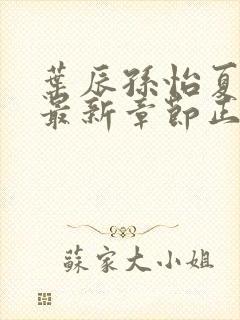 葉辰孫怡夏
最新章節正
蘇家大小姐